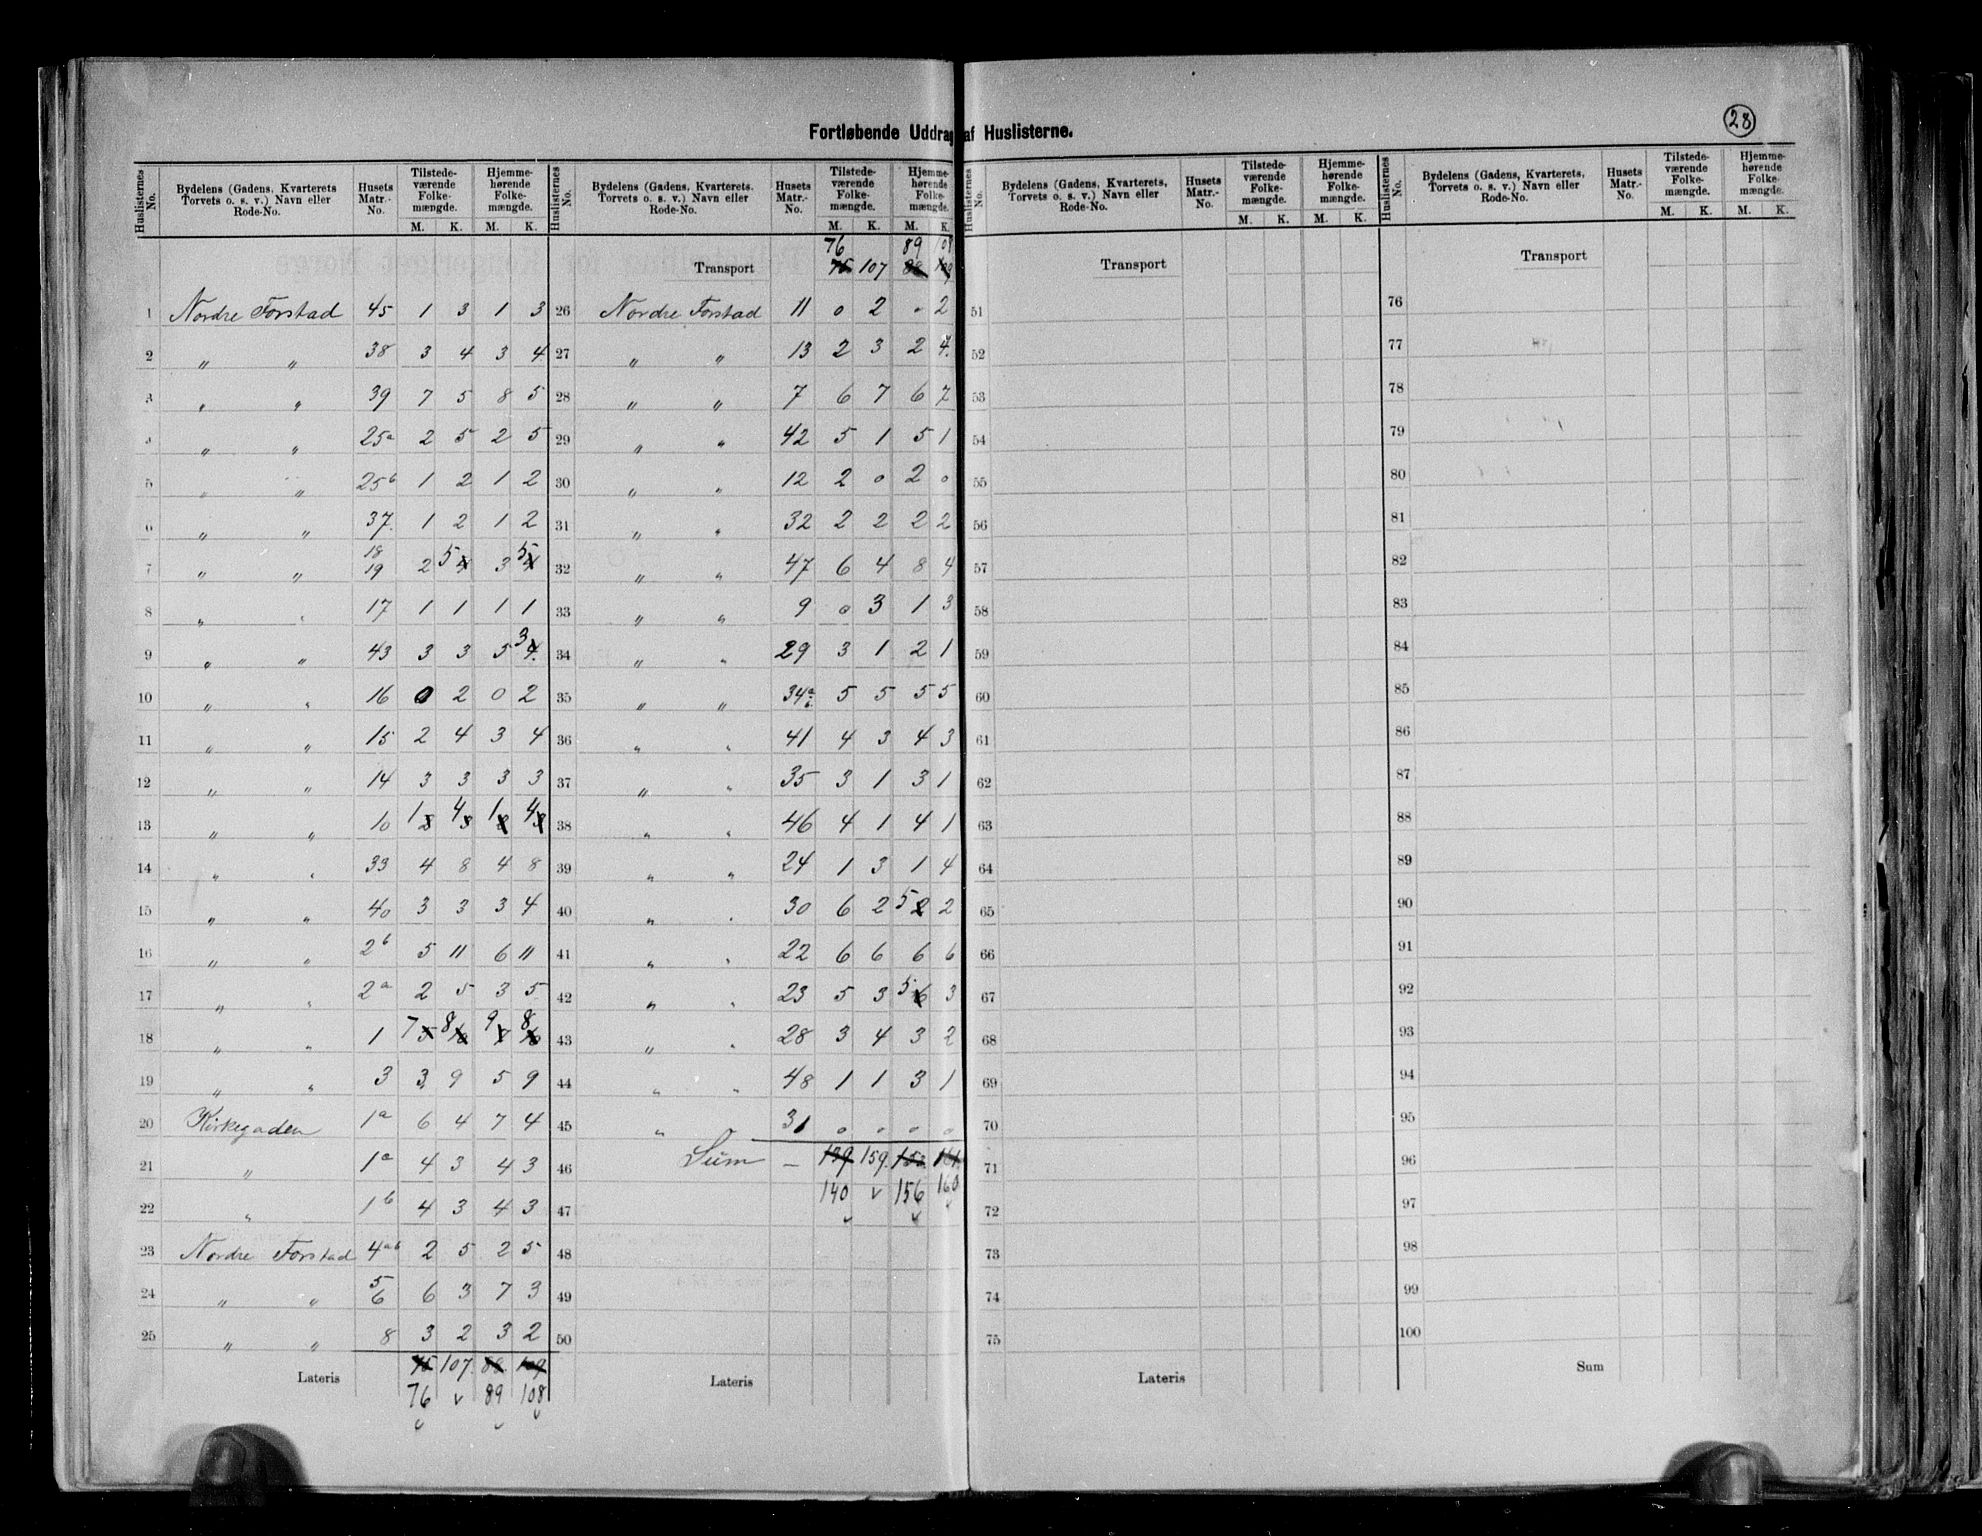 28
Fortløbende Uddrag af Huslisterne.
Huslisternes No. Bydelens (Gadens, Kvarterets Torvets o. s. v.) Navn eller Rode-No. Husets Matr.-No. Tilstede-værende Folke-mængde. M. K. Hjemme-hørende Folke-mængde. M. K.
1 Nordre Forstad 45 1 3 1 3
2 " " 38 3 4 3 4
3 " " 39 7 5 8 5
4 " " 25a 2 5 2 5
5 " " 25b 1 2 1 2
6 " " 37 1 2 1 2
7 " " 18 19 2 5 3 5
8 " " 17 1 1 1 1
9 " " 43 3 3 5 3
10 " " 16 0 2 0 2
11 " " 15 2 4 3 4
12 " " 14 3 3 3 3
13 " " 10 1 4 1 4
14 " " 33 4 8 4 8
15 " " 40 3 3 3 4
16 " " 2b 5 11 6 11
17 " " 2a 2 5 3 5
18 " " 1 7 8 9 8
19 " " 3 3 9 5 9
20 Kirkegaden 1a 6 4 7 4
21 " 1a 4 3 4 3
22 " 1b 4 3 4 3
23 Nordre Forstad 4ab 2 5 2 5
24 " " 5 6 6 3 7 3
25 " " 8 3 2 3 2
Lateris 75 107 88 109
76 v 89 108
Huslisternes No. Bydelens (Gadens, Kvarterets, Torvets o. s. v.) Navn eller Rode-No. Husets Matr.-No. Tilstede-værende Folke-mængde. M. K. Hjemme-hørende Folke-mængde. M. K.
76 89 108
Transport 75 107 88 109
26 Nordre Forstad 11 0 2 " 2
27 " " 13 2 3 2 4
28 " " 7 6 7 6 7
29 " " 42 5 1 5 1
30 " " 12 2 0 2 0
31 " " 32 2 2 2 2
32 " " 47 6 4 8 4
33 " " 9 0 3 1 3
34 " " 29 3 1 2 1
35 " " 34a b 5 5 5 5
36 " " 41 4 3 4 3
37 " " 35 3 1 3 1
38 " " 46 4 1 4 1
39 " " 24 1 3 1 4
40 " " 30 6 2 5 2
41 " " 22 6 6 6 6
42 " " 23 5 3 5 3
43 " " 28 3 4 3 2
44 " " 48 1 1 3 1
45 " 31 0 0 0 0
46 Sum — 139 159 161
47 140 v 156 160
48
49
50
Lateris
Huslisternes No. Bydelens (Gadens, Kvarterets, Torvets o. s. v.) Navn eller Rode-No. Husets Matr.-No. Tilstede-værende Folke-mængde. M. K. Hjemme-hørende Folke-mængde. M. K.
Transport
51
52
53
54
55
56
57
58
59
60
61
62
63
64
65
66
67
68
69
70
71
72
73
74
75
Lateris
Huslisternes No. Bydelens (Gadens, Kvarterets, Torvets o. s. v.) Navn eller Rode-No. Husets Matr.-No. Tilstede-værende Folke-mængde. M. K. Hjemme-hørende Folke-mængde. M. K.
Transport
76
77
78
79
80
81
82
83
84
85
86
87
88
89
90
91
92
93
94
95
96
97
98
99
100
Sum